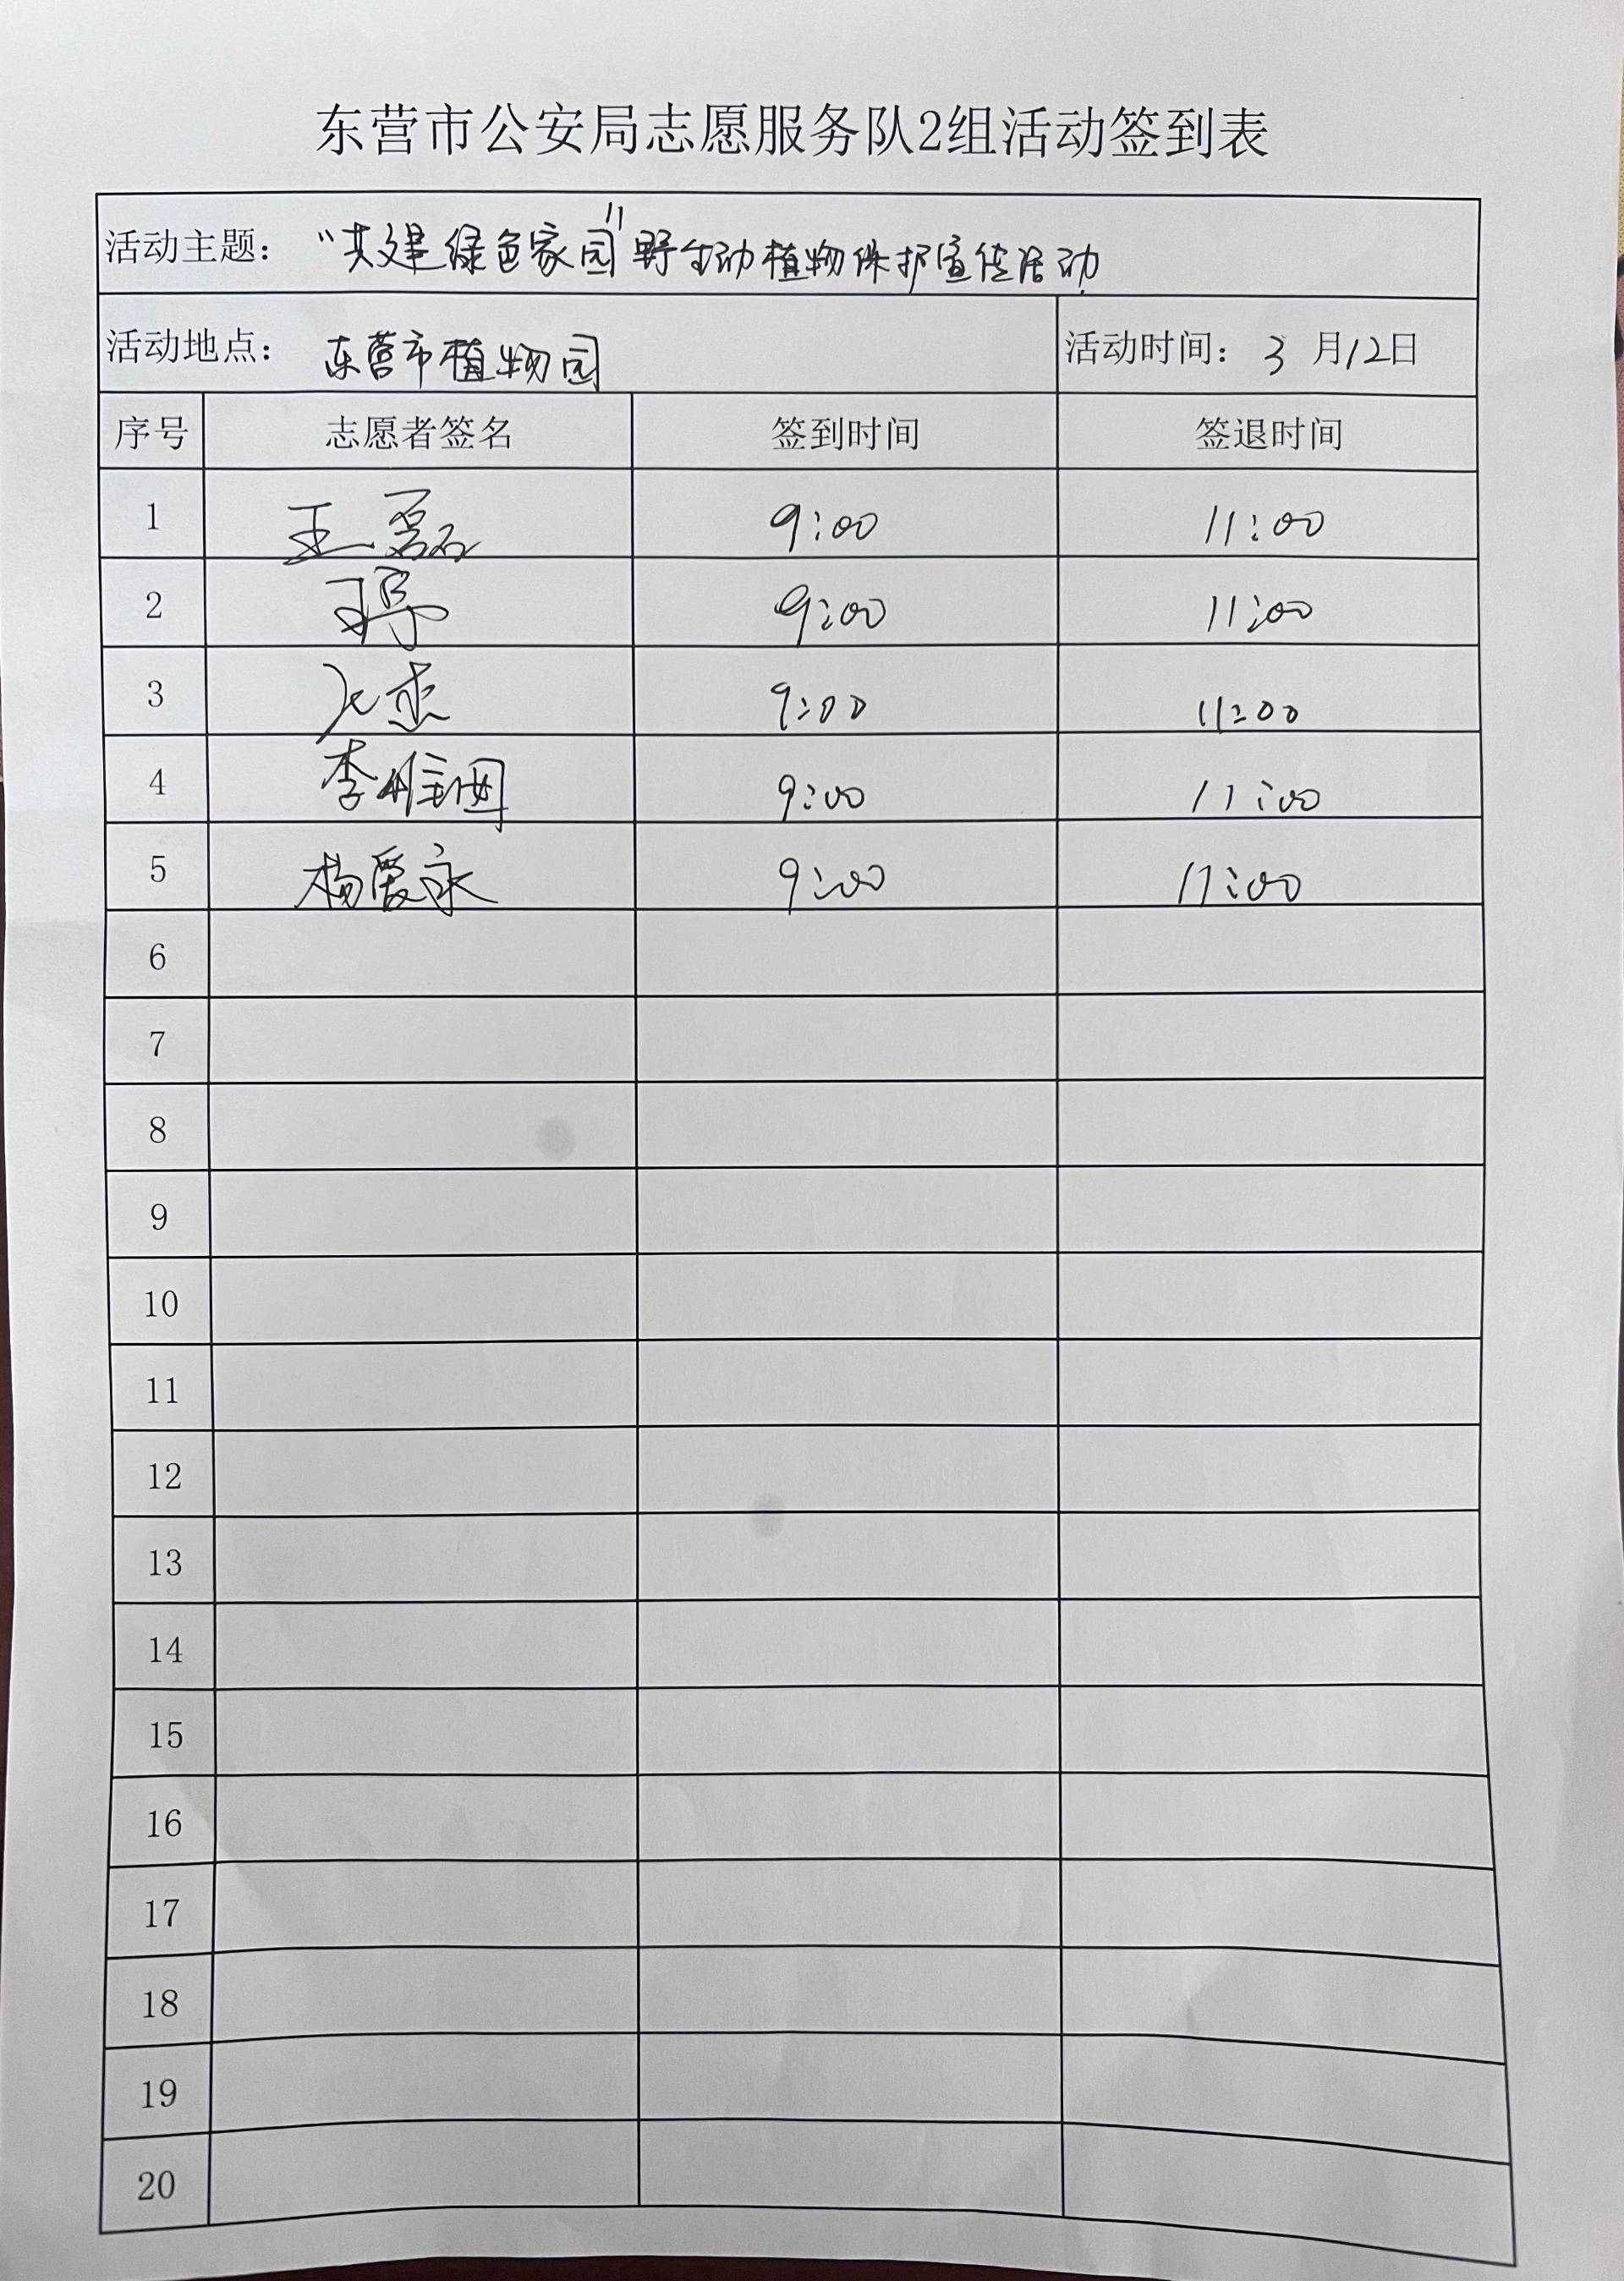 东营市公安局志愿服务队2组活动签到表
活动主题：“共建绿色家园”野生动植物保护宣传活动
活动地点：东营市植物园 活动时间：3月12日
序号 志愿者签名 签到时间 签退时间
1 王磊 9:00 11:00
2 9:00 11:00
3 9:00 11:00
4 李维国 9:00 11:00
5 杨爱永 9:00 11:00
6
7
8
9
10
11
12
13
14
15
16
17
18
19
20